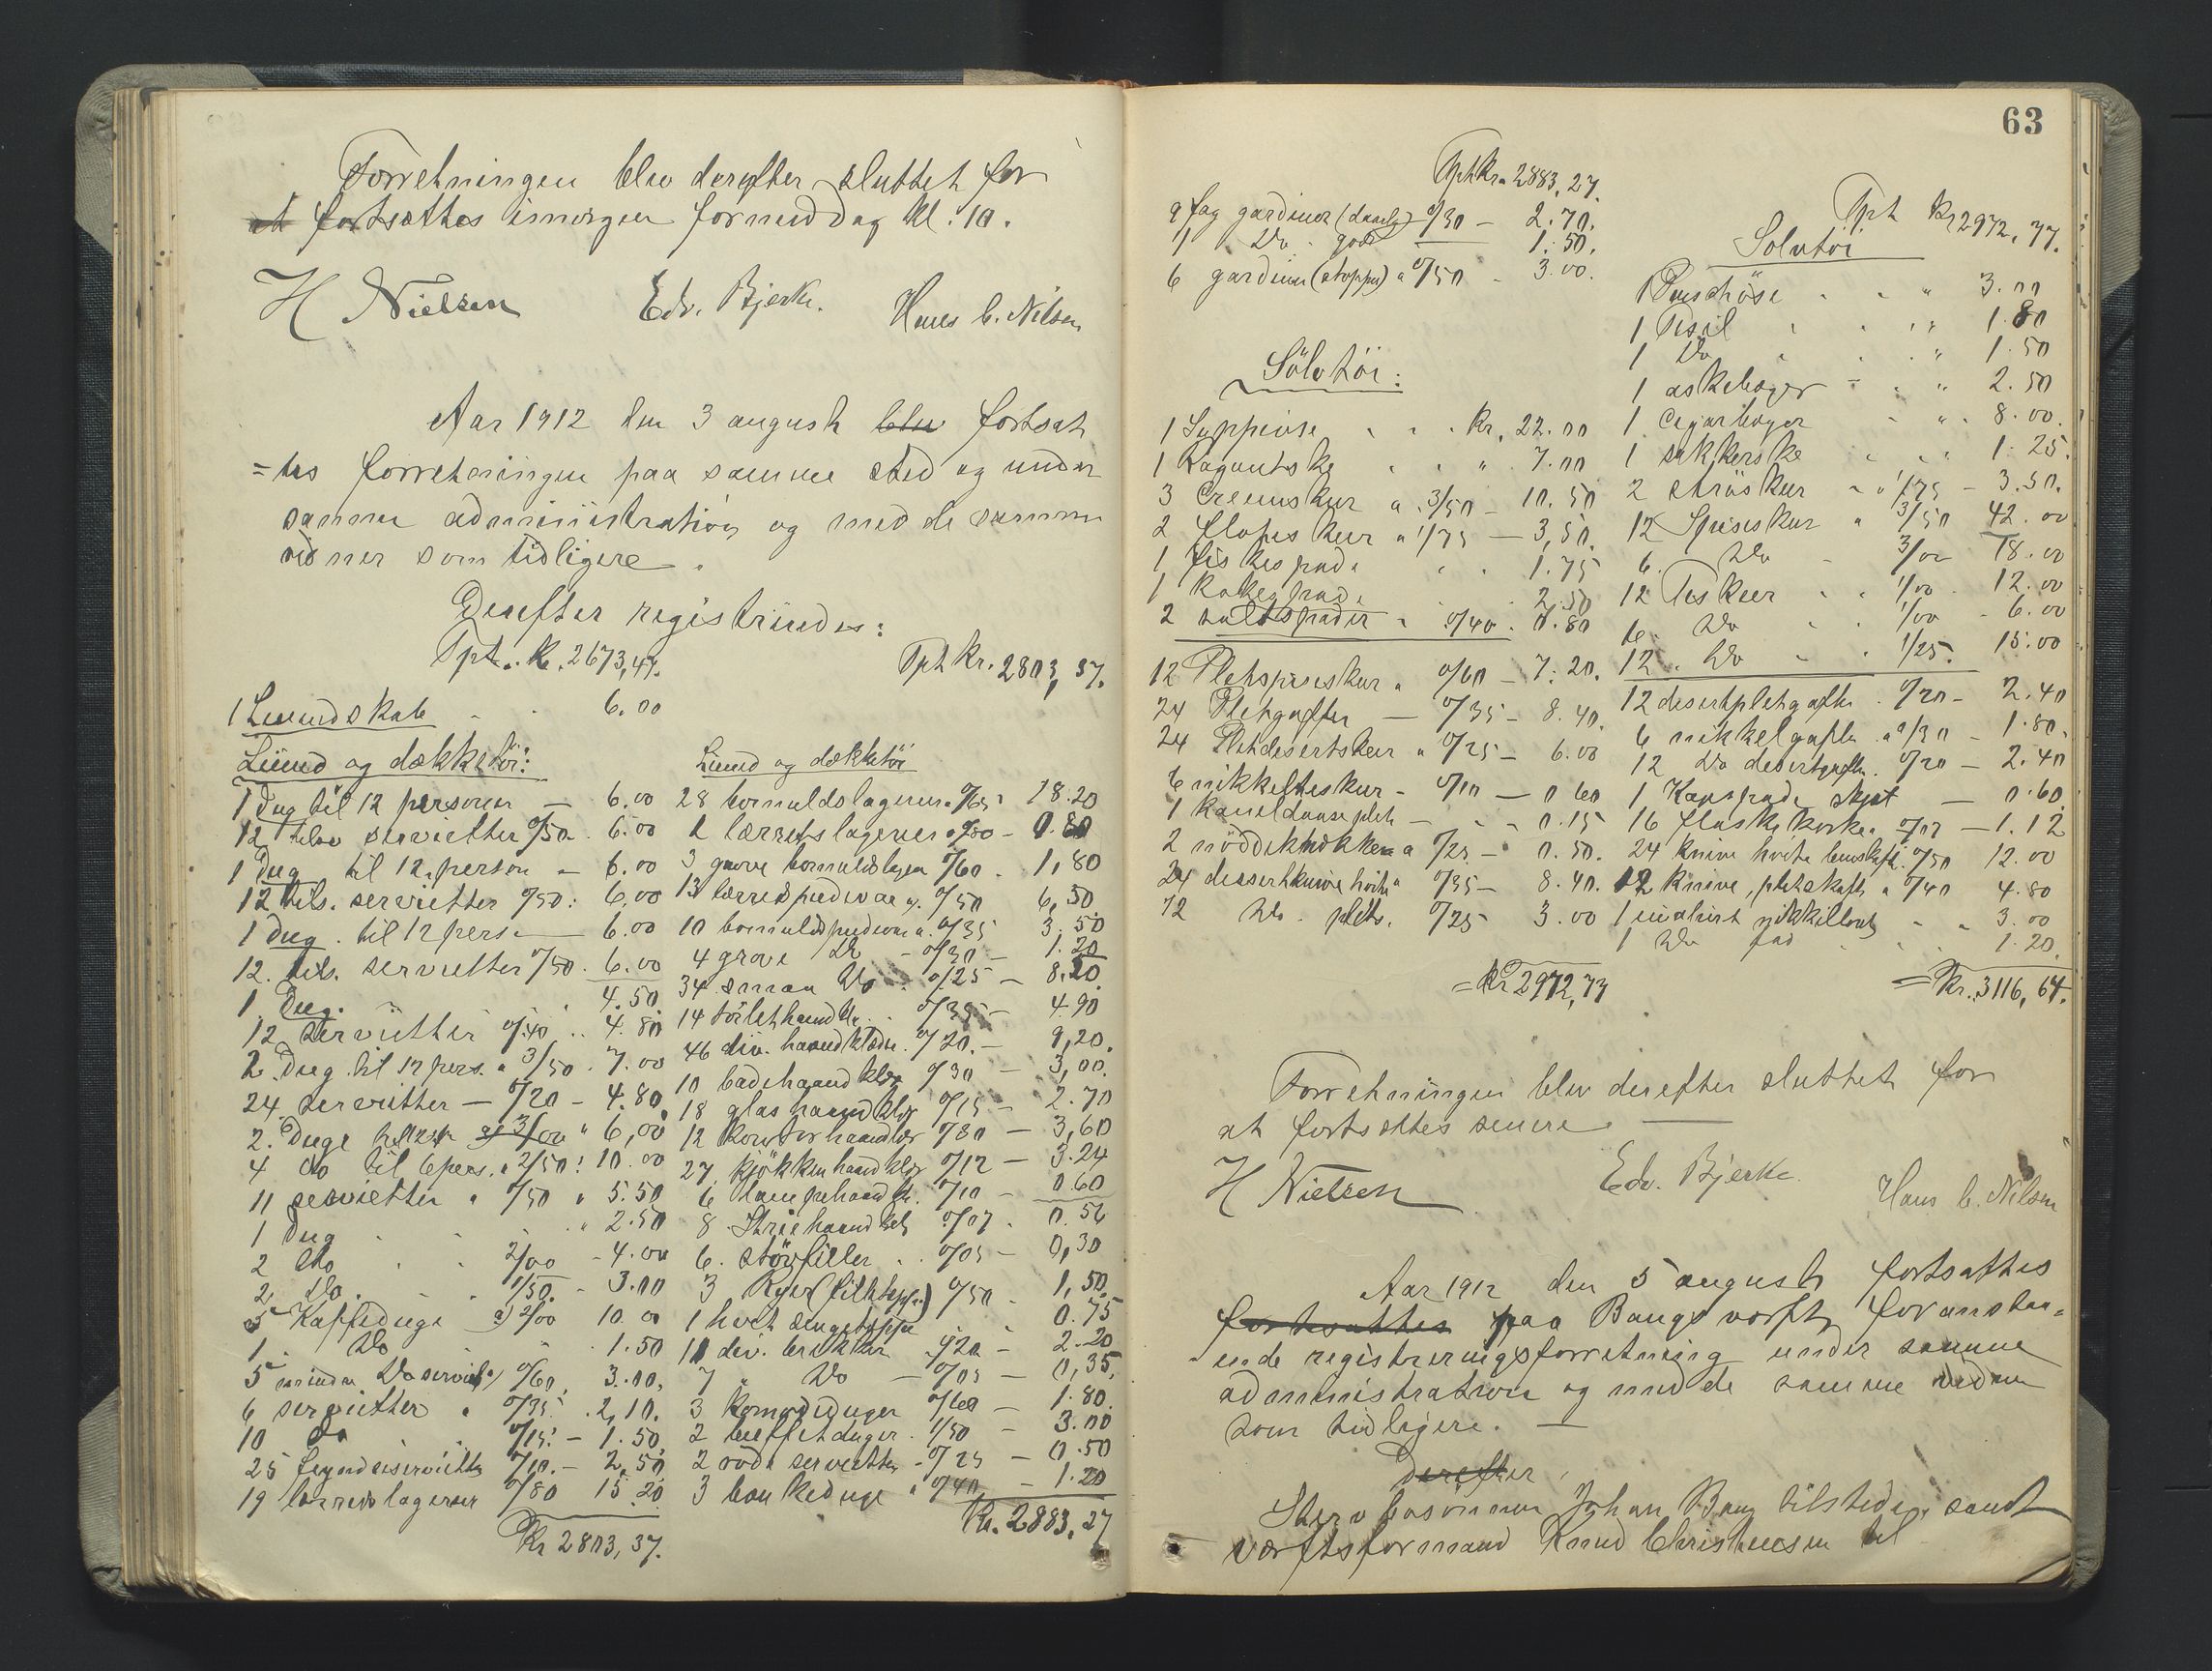 Forretningen blev derefter sluttet for
at fortsættes imorgen formiddag kl. 10.
H Nielsen Edv. Bjerke. Hans C. Nilsen
Aar 1912 den 3 august blev fortsat
=tes forretningen paa samme sted og under
samme administration og med de samme
vidner som tidligere.
Derefter registrertes:
Tpt. Kr. 2673,47.
1 Linnedskab 6.00
Linned og dækketöi:
1 Dug til 12 personer — 6.00
12 tilsv servietter 0/50 6.00
1 Dug til 12 person — 6.00
12 tils. servietter 0/50: 6,00
1 Dug. til 12 pers — 6.00
12. tils. servietter 0/50. 6.00
1 Dug. 4.50
12 servietter 0/40 4.80
2. Dug til 12 pers. a 3/50. 7.00
24 servietter — 0/20 — 4.80
2. Duge til 12 p a 3/00 " 6,00
4 do til 6 pers. a 2/50: 10.00
11 servietter a 0/50 " 5.50
1 Dug " 2.50
2 Do 2/00 - 4.00
2 Do. 1/50. - 3.00
5 Kaffeduge a 2/00 10.00
1. Do 1.50
5 mindre Do 0/60, 3.00,
6 servietter a 0/35 2,10.
10 Do 0/15: — 1.50,
25 servietter 0/10. — 2,50
19 lærredslagener 0/80 15.20
Kr 2803,37.
Tpt Kr. 2803,37.
Linned og dækketöi
28 bomuldslagener a 0/65 18.20
1 lærretslagener a 0/80 — 0.80
3 grove bomuldslagen 0/60 . 1,80
13 lærredspudevar a. 0/50 6,50
10 bomuldspudevar a. 0/35 3.50
4 grove Do - 0/30 — 1.20
34 smaa Do 0/25 — 8.20
14 toilethaandkl. 0/35 — 4.90
46 div. haandklæder. 0/20. — 9,20.
10 badehaandklær 0/30 — 3,00.
18 glashaandklær 0/15 — 2.70
12 kontorhaandklær 0/30 — 3,60
27 kjökkenhaandklær 0/12 — 3.24
6 lampehaandk. 0/10 — 0.60
8 Striehaandkl. 0/07. 0.56
6. störfiller 0/05 — 0,30
3 Ryer (filttepp.) 0/50 1,50.
1 hvit sengeteppe 0.75
11 div. brikker 0/20 — 2.20
7 Do — 0/05 — 0,35,
3 Komodeduger 0/60 — 1.80.
2 buffetduger. 1/50 — 3.00
2 röde servietter - 0/25 — 0.50
3 bankeduge a 0/40 — 1.20
Kr. 2883,27
63
Tpt Kr. 2883,27.
9 fag gardiner (daarlig) 0/30 — 2.70.
1 Do. god 1.50.
6 gardiner (stopper) a 0/50 - 3.00.
Sölvtöi:
1 Suppeöse Kr. 22.00
1 Ragoutske " 7.00
3 Cremskeer a 3/50 — 10.50
2 Flöteskeer a 1/75 — 3,50.
1 fiskespade 1.75
1 kakespade 2.50
2 saltspader a 0/40. 0.80
12 Pletspiseskeer a 0/60 — 7.20.
24 Pletgafler — 0/35 — 8.40.
24 Pletdesertskeer a 0/25 — 6.00
6 nikkelteskeer - 0/10 — 0.60
1 kaneldaase plet - 0.15
2 nöddeknækkere a 0/25 — 0.50.
24 dessertknive hvite a 0/35 — 8.40.
12 Do. plet. 0/25 3.00
= Kr 2972,77
Tpt Kr 2972,77.
Solvtöi
1 Punschöse " 3.00
1 Tesil " 1.80
1 Do " 1.50
1 askebæger " 2.50
1 Cigarbæger " 8.00.
1 sukkerske " 1.25.
2 ströskeer a 1/75 — 3.50.
12 Spiseskeer a 3/50 42.00
6. Do - 3/00 18.00
12 Teskeer 1/00. 12.00
6. Do 1/00 - 6.00
12. Do 1/25. 15.00
12 desertpletgafler. 0/20 — 2.40
6 nikkelgafler a 0/30 — 1.80.
12 Do desertgafler. 0/20 — 2.40
1 Kagespade skjæt — 0.60.
16 flaskekorker 0/07 — 1.12
24 knive hvite benskaft. 0/50 12.00
12 knive, pletskaft a 0/40 4.80
1 nikkelbret 3.00
1 Do fad 1.20.
= Kr. 3116,64.
Forretningen blev derefter sluttet for
at fortsættes senere —
H Nielsen Edv. Bjerke. Hans C. Nilsen
Aar 1912 den 5 august fortsattes
fortsattes paa Bangs værft, foranstaa=
ende registreringsforretning under samme
administration og med de samme vidner
som tidligere. —
Derefter
Stervbosönnen Johan Bang tilstede, samt
værftsformand Knud Christensen til